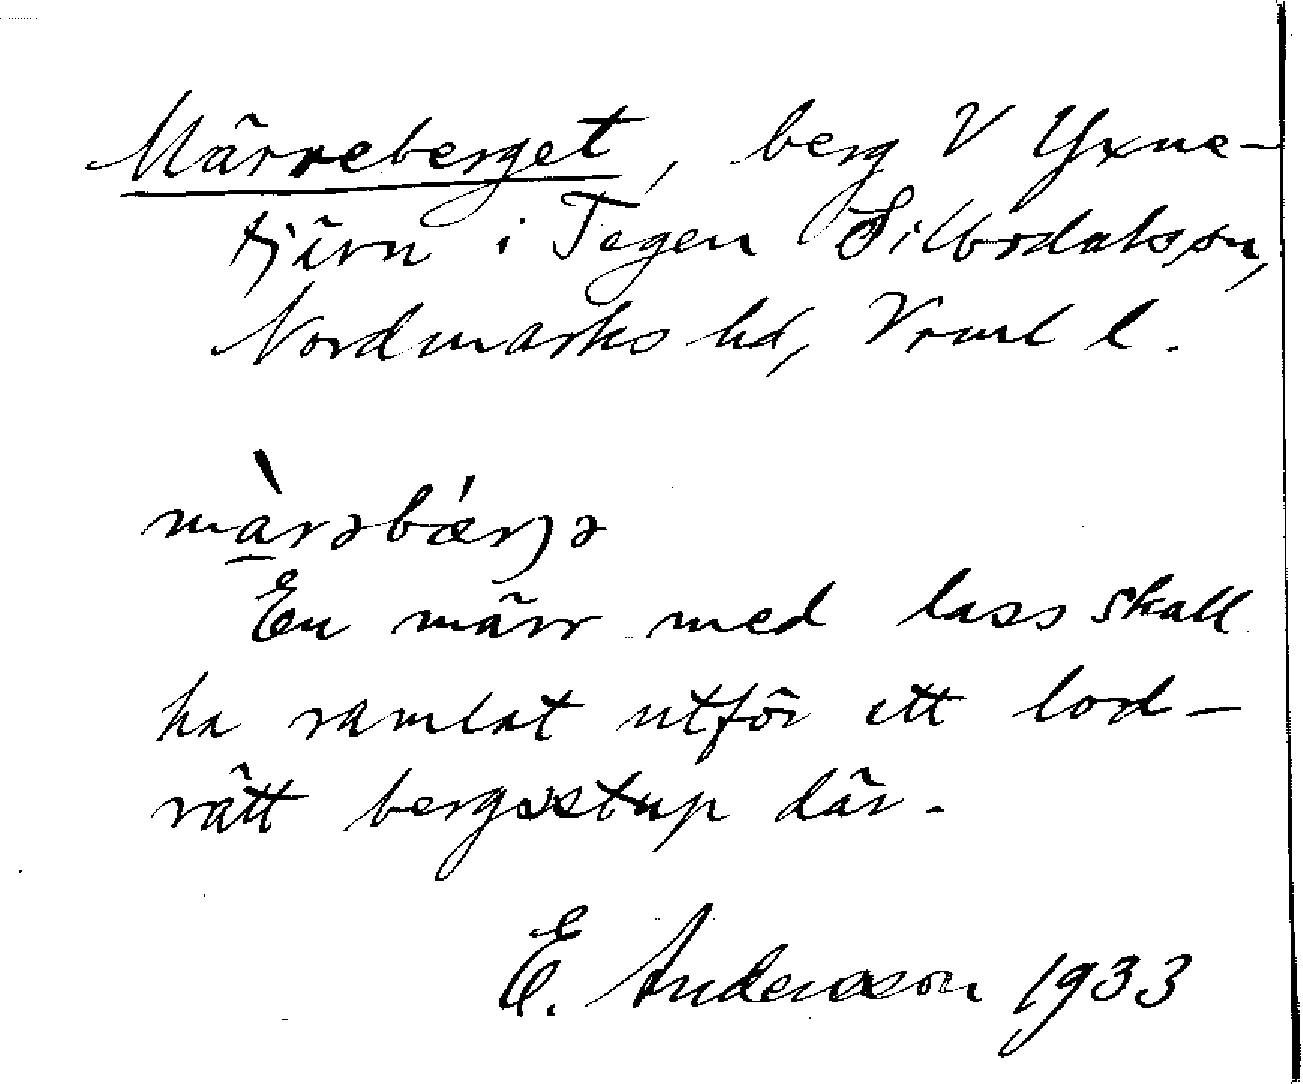 Märreberget, berg V Yxne-
tjärn i Tegen Silbodals sn,
Nordmarks hd, Vrml l.
màrəbǽrjə
En märr med lass skall
ha ramlat utför ett lod-
rätt bergsstup där.
E. Andersson 1933